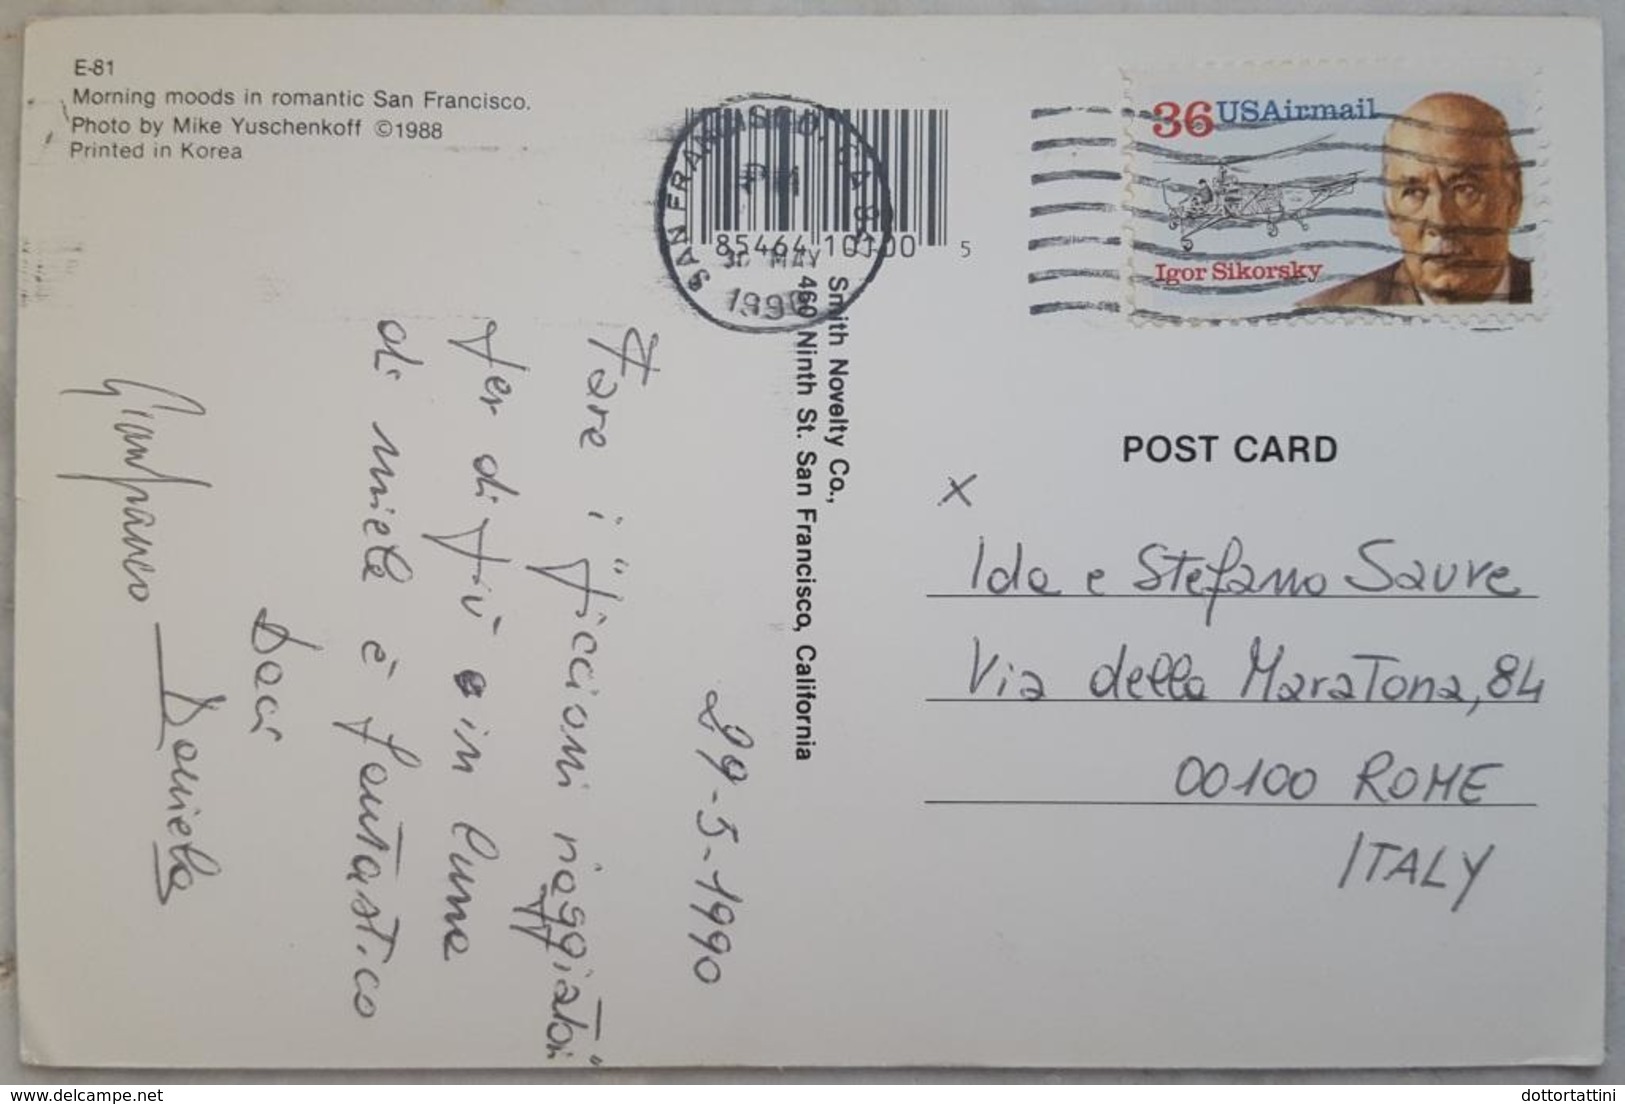 E-81
Morning moods in romantic San Francisco.
Photo by Mike Yuschenkoff ©1988
Printed in Korea
SAN FRANCISCO, CA
30 MAY
1990
85464 10100 5
Smith Novelty Co.,
460 Ninth St. San Francisco, California
36 USAirmail
Igor Sikorsky
POST CARD
x
Ida e Stefano Sauve
Via della Maratona, 84
00100 ROME
ITALY
29-5-1990
Fare i "piccioni viaggiatori"
per di più in luna
di miele è fantastico
Baci
Gianfranco Daniela
dottortattini